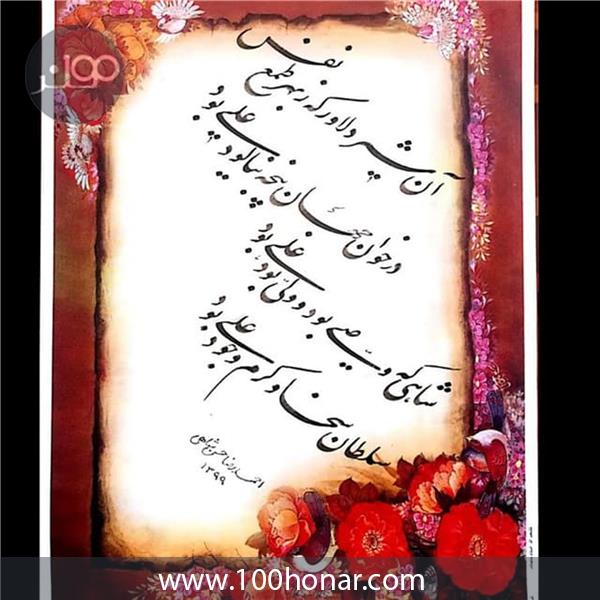 آن شیر دلاور که ز بهر طمع نفس
در خوان جهان پنجه نیالود علی بود
شاهی که وصی بود و ولی بود علی بود
سلطان سخا و کرم و جود علی بود
احمدرضا
۱۳۹۹
۱۰۰هنر
www.100honar.com